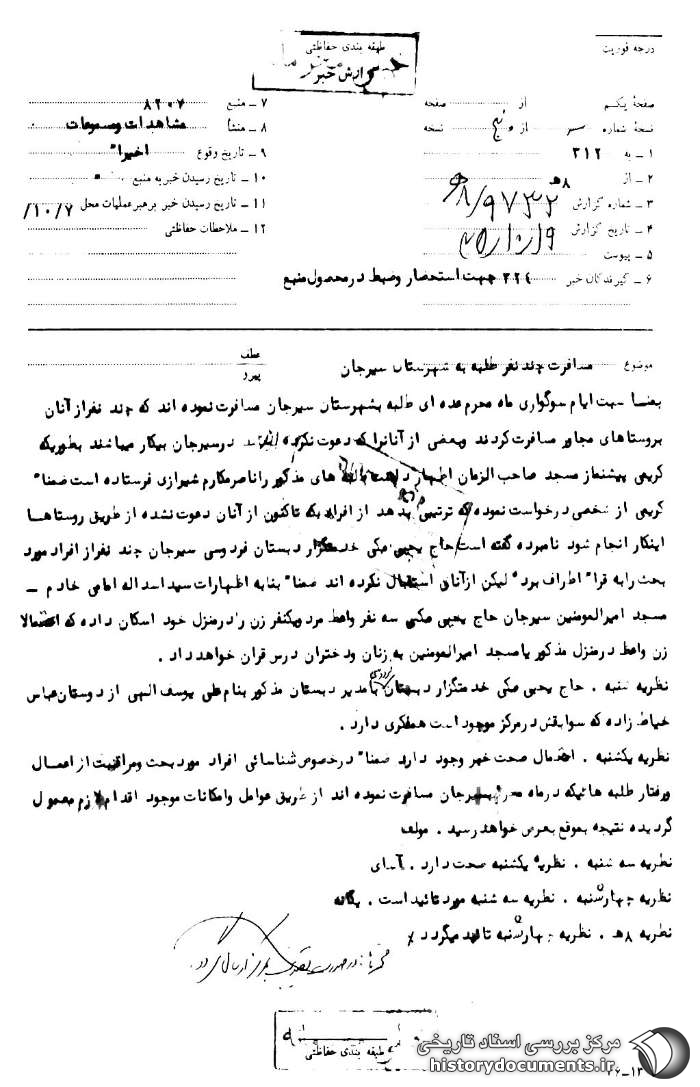 درجه فوریت
طبقه بندی حفاظتی
گزارش خبر
صفحهٔ یکم از صفحه
نسخهٔ شماره از نسخه
۱ ـ به ۳۱۲
۲ ـ از ۸هـ
۳ ـ شماره گزارش ۹۷۳۲/۸هـ
۴ ـ تاریخ گزارش
۵ ـ پیوست
۶ ـ گیرندگان خبر ۳۲۴ جهت استحضار وضبط درمحصول منبع
۷ ـ منبع ۸۲۰۷
۸ ـ منشأ مشاهدات ومسموعات
۹ ـ تاریخ وقوع اخیرا"
۱۰ ـ تاریخ رسیدن خبر به منبع "
۱۱ ـ تاریخ رسیدن خبر برهبر عملیات محل ۱۰/۷/
۱۲ ـ ملاحظات حفاظتی
موضوع مسافرت چند نفر طلبه به شهرستان سیرجان عطف
پیرو
بمناسبت ایام سوگواری ماه محرم عده ای طلبه بشهرستان سیرجان مسافرت نموده اند که چند نفراز آنان
بروستاهای مجاور مسافرت کردند وبعضی از آنانرا که دعوت نکرده اند درسیرجان بیکار میباشند بطوریکه
کریمی پیشنماز مسجد صاحب الزمان اظهار داشت طلبه های مذکور را ناصرمکارم شیرازی فرستاده است ضمنا"
کریمی از شخصی درخواست نموده که ترتیبی بدهد از افرادیکه تاکنون از آنان دعوت نشده از طریق روستاها
اینکار انجام شود نامبرده گفته است حاج یحیی مکی خدمتگزار دبستان فردوسی سیرجان چند نفراز افراد مورد
بحث رابه قرا" اطراف برد" لیکن ازآنان استقبال نکرده اند ضمنا" بنابه اظهارات سید اسداله امامی خادم ـ
مسجد امیرالمومنین سیرجان حاج یحیی مکی سه نفر واعظ مرد ویکنفر زن رادرمنزل خود اسکان داده که احتمالا
زن واعظ درمنزل مذکور یا مسجد امیرالمومنین به زنان ودختران درس قران خواهد داد .
نظریه شنبه . حاج یحیی مکی خدمتگزار دبستان فردوسی بامدیر دبستان مذکور بنام علی یوسف الهی از دوستان عباس
خیاط زاده که سوابقش درمرکز موجود است همفکری دارد .
نظریه یکشنبه . احتمال صحت خبر وجود دارد ضمنا" درخصوص شناسائی افراد مورد بحث ومراقبت از اعمال
ورفتار طلبه هائیکه درماه محرم بسیرجان مسافرت نموده اند از طریق عوامل وامکانات موجود اقدام لازم معمول
گردیده نتیجه بموقع بعرض خواهد رسید . مولف
نظریه سه شنبه . نظریه یکشنبه صحت دارد . آسای
نظریه چهارشنبه . نظریه سه شنبه مورد تائید است . یگانه
نظریه ۸هـ . نظریه چهارشنبه تائید میگردد
طبقه بندی حفاظتی
مرکز بررسی اسناد تاریخی
historydocuments.ir